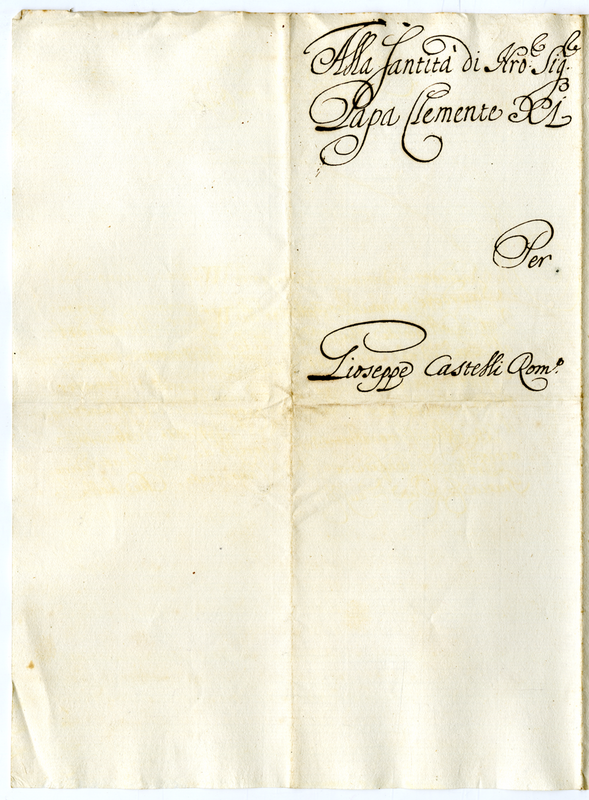 Alla Santità di Nro: Sig.re
Papa Clemente XI
Per
Gioseppe Castelli Rom.o